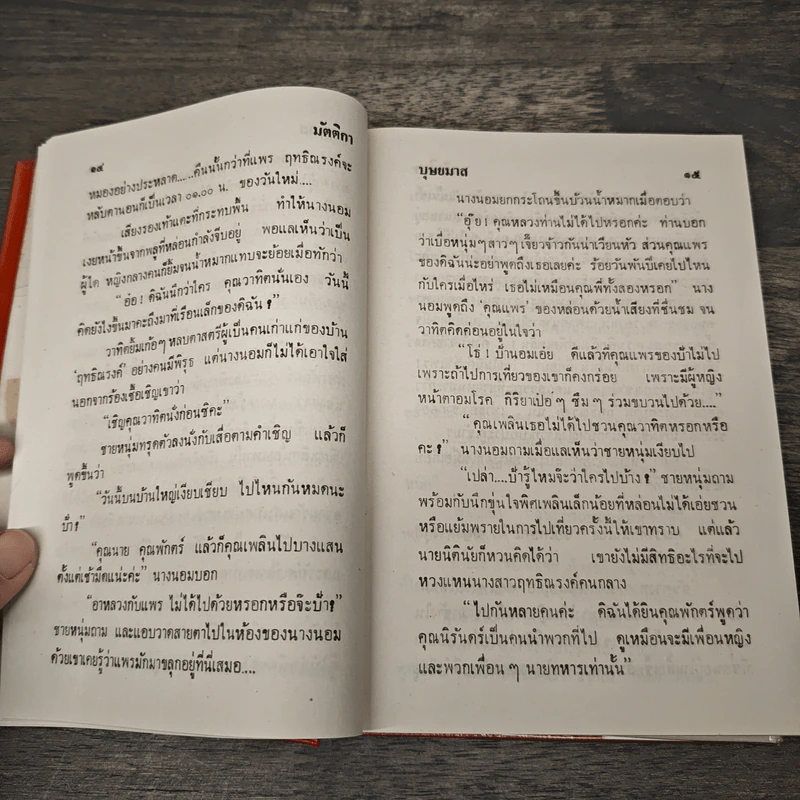 ๑๔
มัตติกา
หมองอย่างประหลาด.....คืนนั้นกว่าที่แพร ฤทธิณรงค์จะ
หลับตานอนก็เป็นเวลา ๐๑.๐๐ น. ของวันใหม่....
เสียงรองเท้าแตะที่กระทบพื้น ทำให้นางนอม
เงยหน้าขึ้นจากพลูที่หล่อนกำลังจีบอยู่ พอแลเห็นว่าเป็น
ผู้ใด หญิงกลางคนก็ยิ้มจนน้ำหมากแทบจะย้อยเมื่อทักว่า
“อ๋อ! ดิฉันนึกว่าใคร คุณวาทิตนั่นเอง วันนี้
คิดยังไงขึ้นมาคะถึงมาที่เรือนเล็กของดิฉัน ?”
วาทิตยิ้มเก้อๆ หลบตาสตรีผู้เป็นคนเก่าแก่ของบ้าน
‘ฤทธิณรงค์’ อย่างคนมีพิรุธ แต่นางนอมก็ไม่ได้เอาใจใส่
นอกจากร้องเชื้อเชิญเขาว่า
“เชิญคุณวาทิตนั่งก่อนซิคะ”
ชายหนุ่มทรุดตัวลงนั่งกับเสื่อตามคำเชิญ แล้วก็
พูดขึ้นว่า
“วันนี้บนบ้านใหญ่เงียบเชียบ ไปไหนกันหมดนะ
ป้า?”
“คุณนาย คุณพักตร์ แล้วก็คุณเพลินไปบางแสน
ตั้งแต่เช้ามืดแน่ะค่ะ” นางนอมบอก
“อาหลวงกับแพร ไม่ได้ไปด้วยหรอกหรือจ๊ะป้า?”
ชายหนุ่มถาม และแอบวาดสายตาไปในห้องของนางนอม
ด้วยเขาเคยรู้ว่าแพรมักมาขลุกอยู่ที่นี่เสมอ....
บุษยมาส
๑๕
นางนอมยกกระโถนขึ้นบ้วนน้ำหมากเมื่อตอบว่า
“อุ๊ย! คุณหลวงท่านไม่ได้ไปหรอกค่ะ ท่านบอก
ว่าเบื่อหนุ่มๆสาวๆเจี๊ยวจ๊าวกันน่าเวียนหัว ส่วนคุณแพร
ของดิฉันน่ะอย่าพูดถึงเธอเลยค่ะ ร้อยวันพันปีเคยไปไหน
กับใครเมื่อไหร่ เธอไม่เหมือนคุณพี่ทั้งสองหรอก” นาง
นอมพูดถึง ‘คุณแพร’ ของหล่อนด้วยน้ำเสียงที่ชื่นชม จน
วาทิตคิดค่อนอยู่ในใจว่า
“โธ่! ป้านอมเอ๋ย ดีแล้วที่คุณแพรของป้าไม่ไป
เพราะถ้าไปการเที่ยวของเขาก็คงกร่อย เพราะมีผู้หญิง
หน้าตาอมโรค กิริยาเปิ่นๆ ซึมๆ ร่วมขบวนไปด้วย....”
“คุณเพลินเธอไม่ได้ไปชวนคุณวาทิตหรอกหรือ
คะ ?” นางนอมถามเมื่อแลเห็นว่าชายหนุ่มเงียบไป
“เปล่า....ป้ารู้ไหมจ๊ะว่าใครไปบ้าง ?” ชายหนุ่มถาม
พร้อมกับนึกขุ่นใจพิศเพลินเล็กน้อยที่หล่อนไม่ได้เอ่ยชวน
หรือแย้มพรายในการไปเที่ยวครั้งนี้ให้เขาทราบ แต่แล้ว
นายนิตินัยก็หวนคิดได้ว่า เขายังไม่มีสิทธิอะไรที่จะไป
หวงแหนนางสาวฤทธิณรงค์คนกลาง
“ไปกันหลายคนค่ะ ดิฉันได้ยินคุณพักตร์พูดว่า
คุณนิรันดร์เป็นคนนำพวกที่ไป ดูเหมือนจะมีเพื่อนหญิง
และพวกเพื่อนๆ นายทหารเท่านั้น”